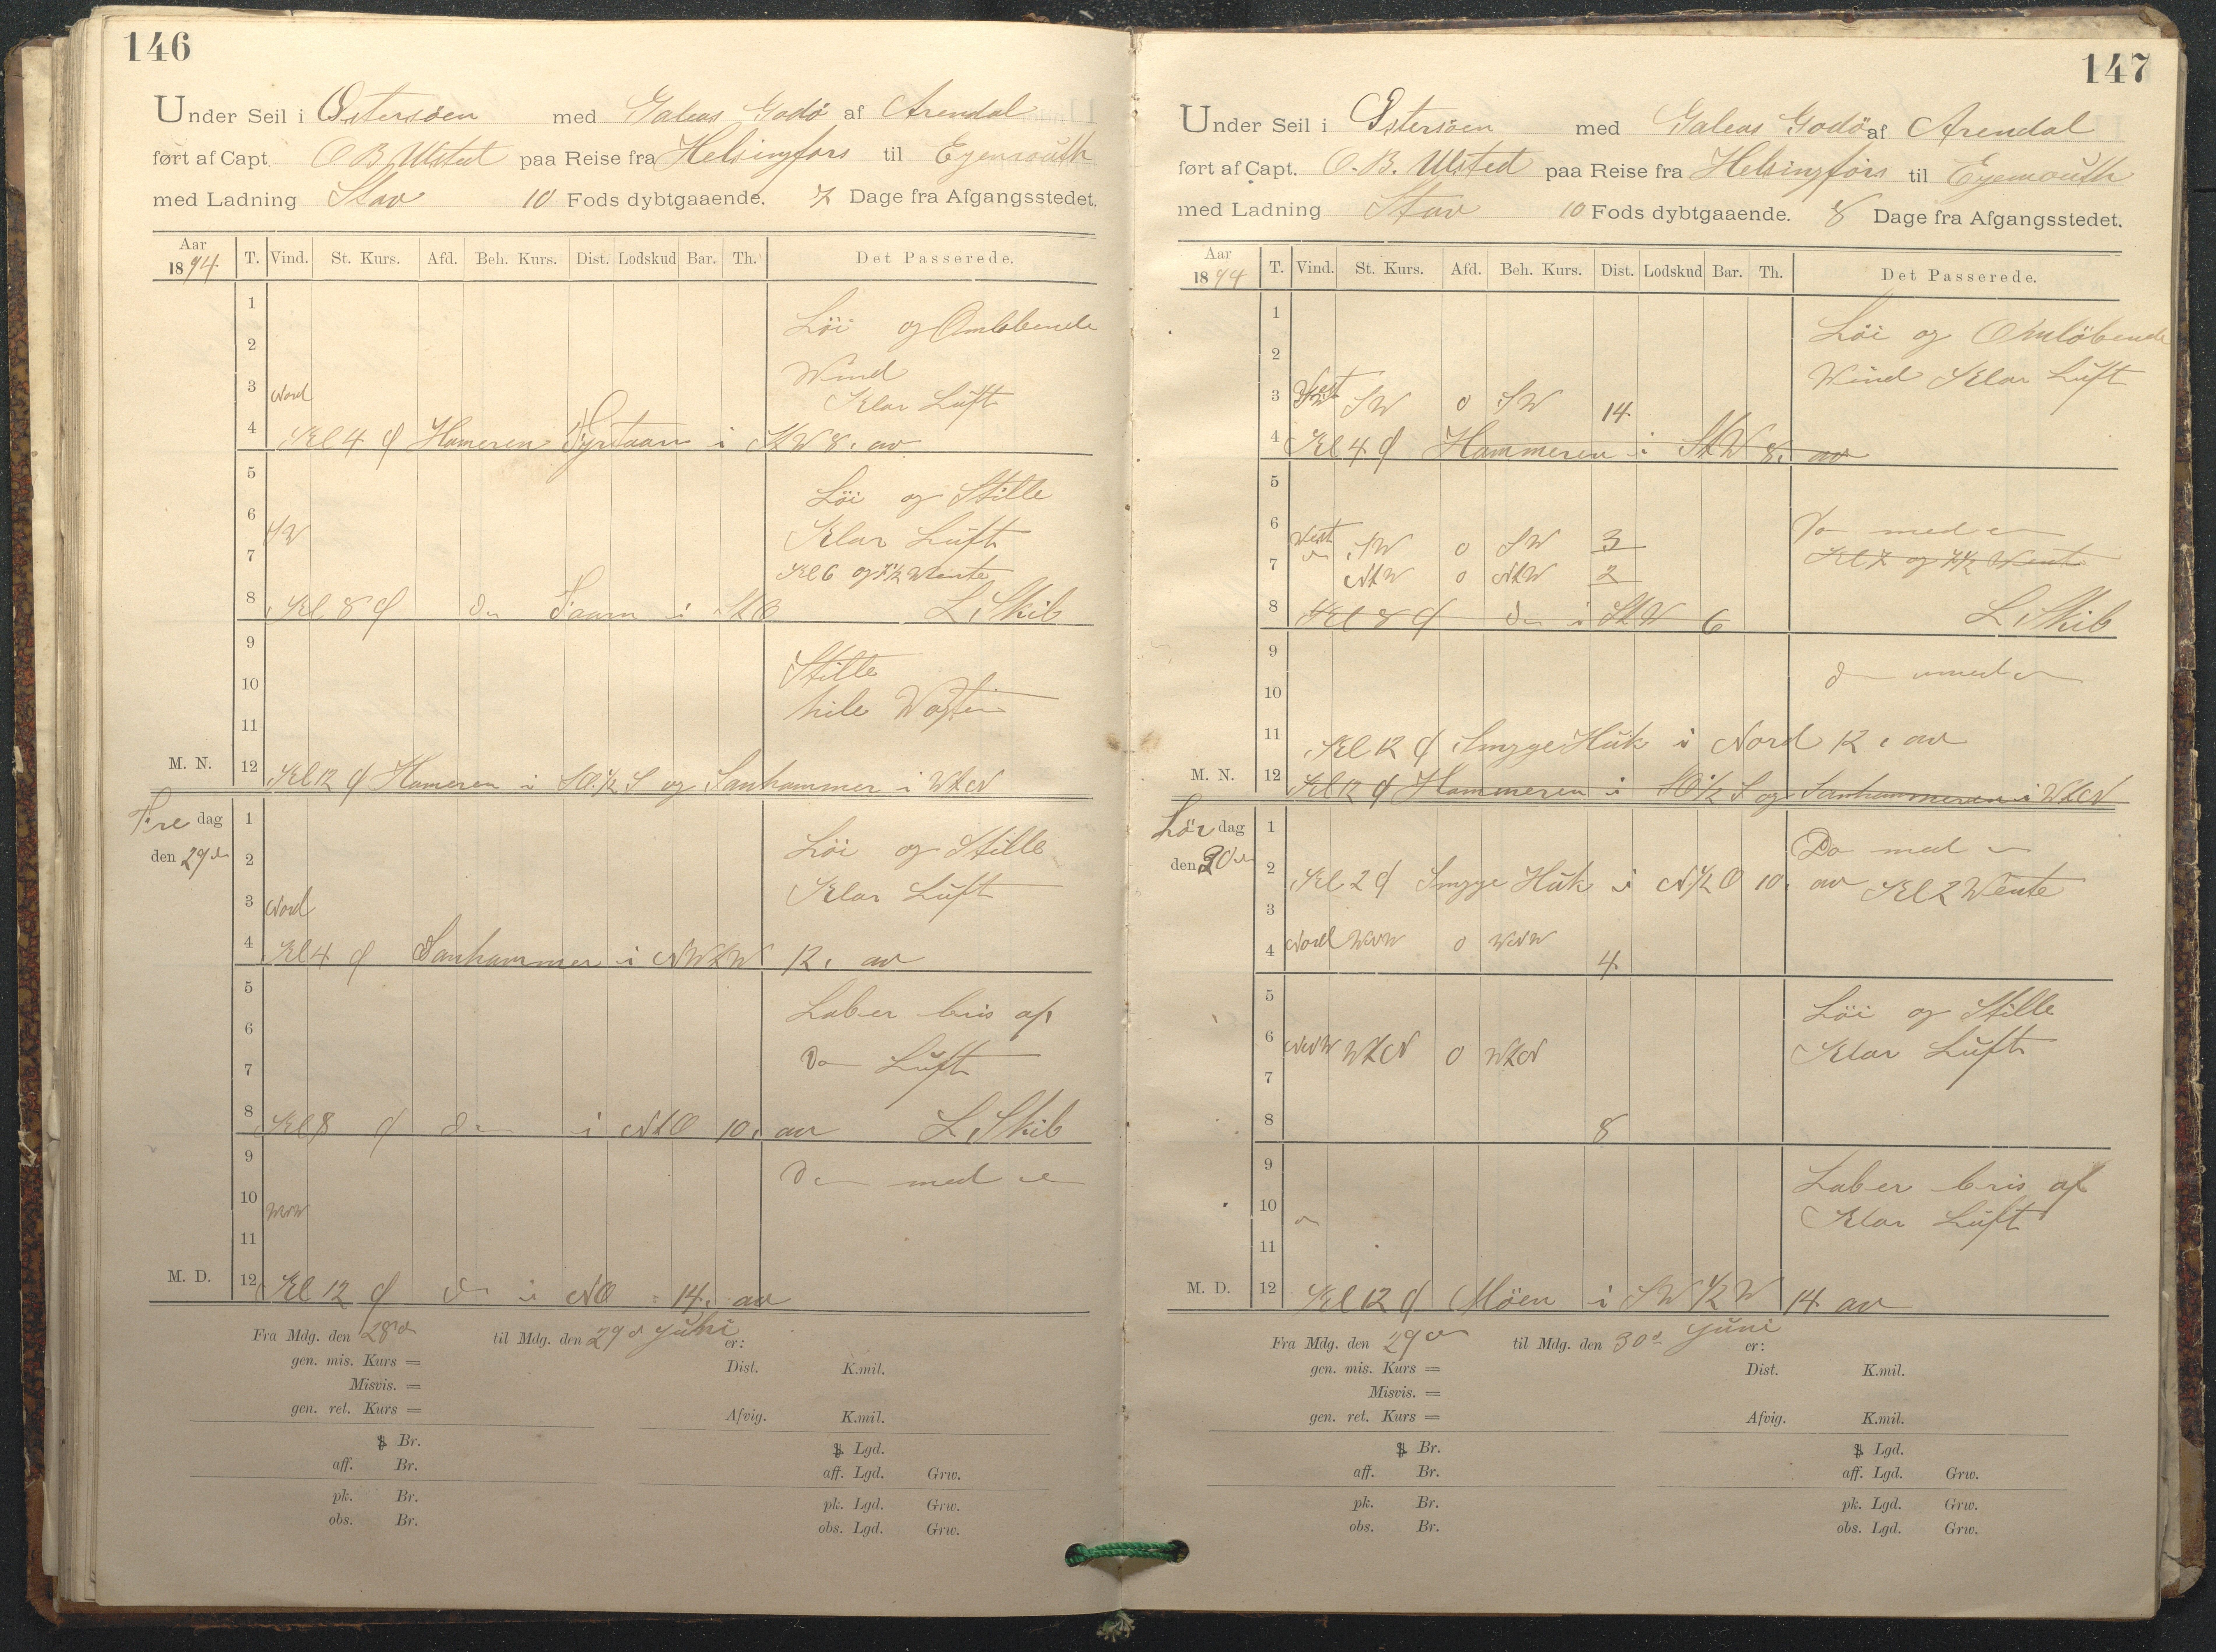 146
Under Seil i Østersöen med Galeas Godö af Arendal
ført af Capt. O B Ulsted paa Reise fra Helsingfors til Eyemouth
med Ladning Stav 10 Fods dybtgaaende. 7 Dage fra Afgangsstedet.
Aar 1894 T. Vind. St. Kurs. Afd. Beh. Kurs. Dist. Lodskud Bar. Th. Det Passerede.
1
Löi og Omlöbende
2
Wind
3 Nord
Klar Luft
4 Kl 4 Hameren i StW 8. av
5
Löi og Stille
6 SW
Klar Luft
7
Kl 6 og 7½ Wente
8 Kl 8 Do i StO L. Skib
9
Stille
10
hile Wagten
11
M. N. 12 Kl 12 Hameren i SO.½ S og Sanhammer i WtN
Fredag 1
den 29de 2
Löi og Stille
3 Nord
Klar Luft
4 Kl 4 Sanhammer i NWtW 12. av
5
Laber bris af
6
Do Luft
7
8 Kl 8 Do i NtO 10. av L. Skib
9
Do med
10 WNW
11
M. D. 12 Kl 12 Do i NO 14. av
Fra Mdg. den 28de til Mdg. den 29de Juni er:
gen. mis. Kurs = Dist. K.mil.
Misvis. =
gen. ret. Kurs = Afvig. K.mil.
Br. Lgd.
aff. Br. aff. Lgd. Grw.
pk. Br. pk. Lgd. Grw.
obs. Br. obs. Lgd. Grw.
147
Under Seil i Østersöen med Galeas Godö af Arendal
ført af Capt. O. B. Ulsted paa Reise fra Helsingfors til Eyemouth
med Ladning Stav 10 Fods dybtgaaende. 8 Dage fra Afgangsstedet.
Aar 1894 T. Vind. St. Kurs. Afd. Beh. Kurs. Dist. Lodskud Bar. Th. Det Passerede.
1
Löi og Omlöbende
2
Wind Klar Luft
3 West SW 0 SW 14
4 Kl 4 Hammeren i StW 8. av
5
6
Do med
West SW 0 SW 3
7 Kl 7 og 7½ Wente
NtW 0 NtW 2
8 Kl 8 Do i StW 6 L. Skib
9
Do med
10
11 Kl 12 Smyge Huk i Nord 12. av
M. N. 12 Kl 12 Hammeren i SO.½ S og Sanhammeren i WtN
Lördag 1
Do med
den 30de 2 Kl 2 Smyge Huk i N½O 10. av Kl 2 Wente
3
4 Nord WNW 0 WNW 4
5
Löi og Stille
6 NNW WtN 0 WtN
Klar Luft
7
8 8
9
Laber bris af
10
Klar Luft
11
M. D. 12 Kl 12 Möen i SW½W 14 av
Fra Mdg. den 29de til Mdg. den 30de Juni er:
gen. mis. Kurs = Dist. K.mil.
Misvis. =
gen. ret. Kurs = Afvig. K.mil.
Br. Lgd.
aff. Br. aff. Lgd. Grw.
pk. Br. pk. Lgd. Grw.
obs. Br. obs. Lgd. Grw.